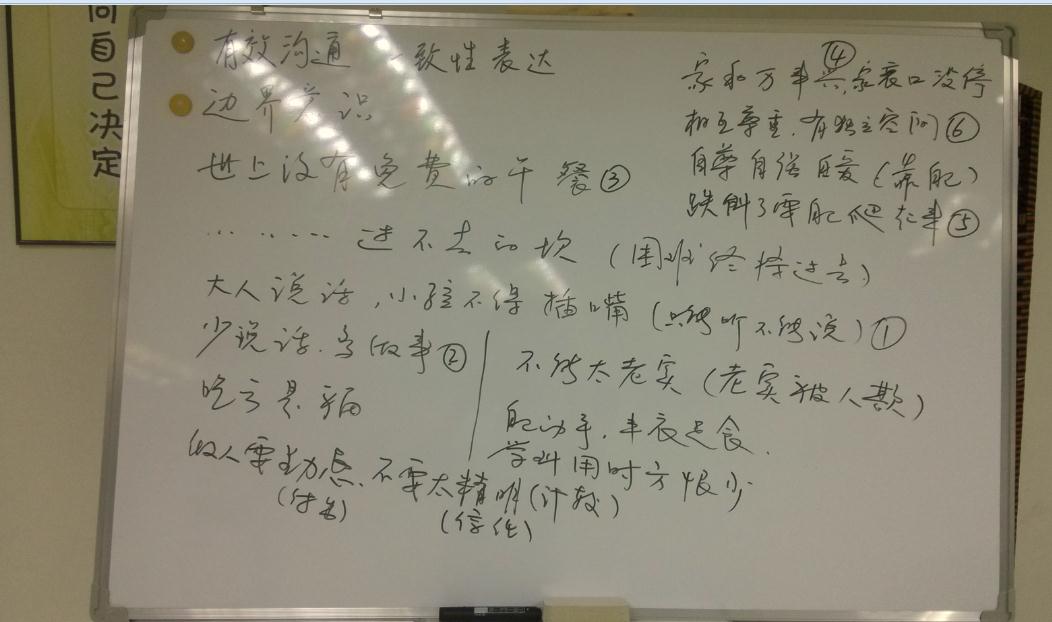 向自己决定
有效沟通 一致性表达
边界意识
世上没有免费的午餐③
……… 过不去的坎（困难终将过去）
大人说话，小孩不得插嘴（只能听不能说）①
少说话．多做事②
吃亏是福
做人要勤感．不要太精明（计较）
（付出）
（信任）
④
家和万事兴．家衰口没停
相互尊重．有独立空间⑥
自尊自信自爱（靠自己）
跌倒了要自己爬起来⑤
不能太老实（老实被人欺）
自己动手．丰衣足食．
学到用时方恨少